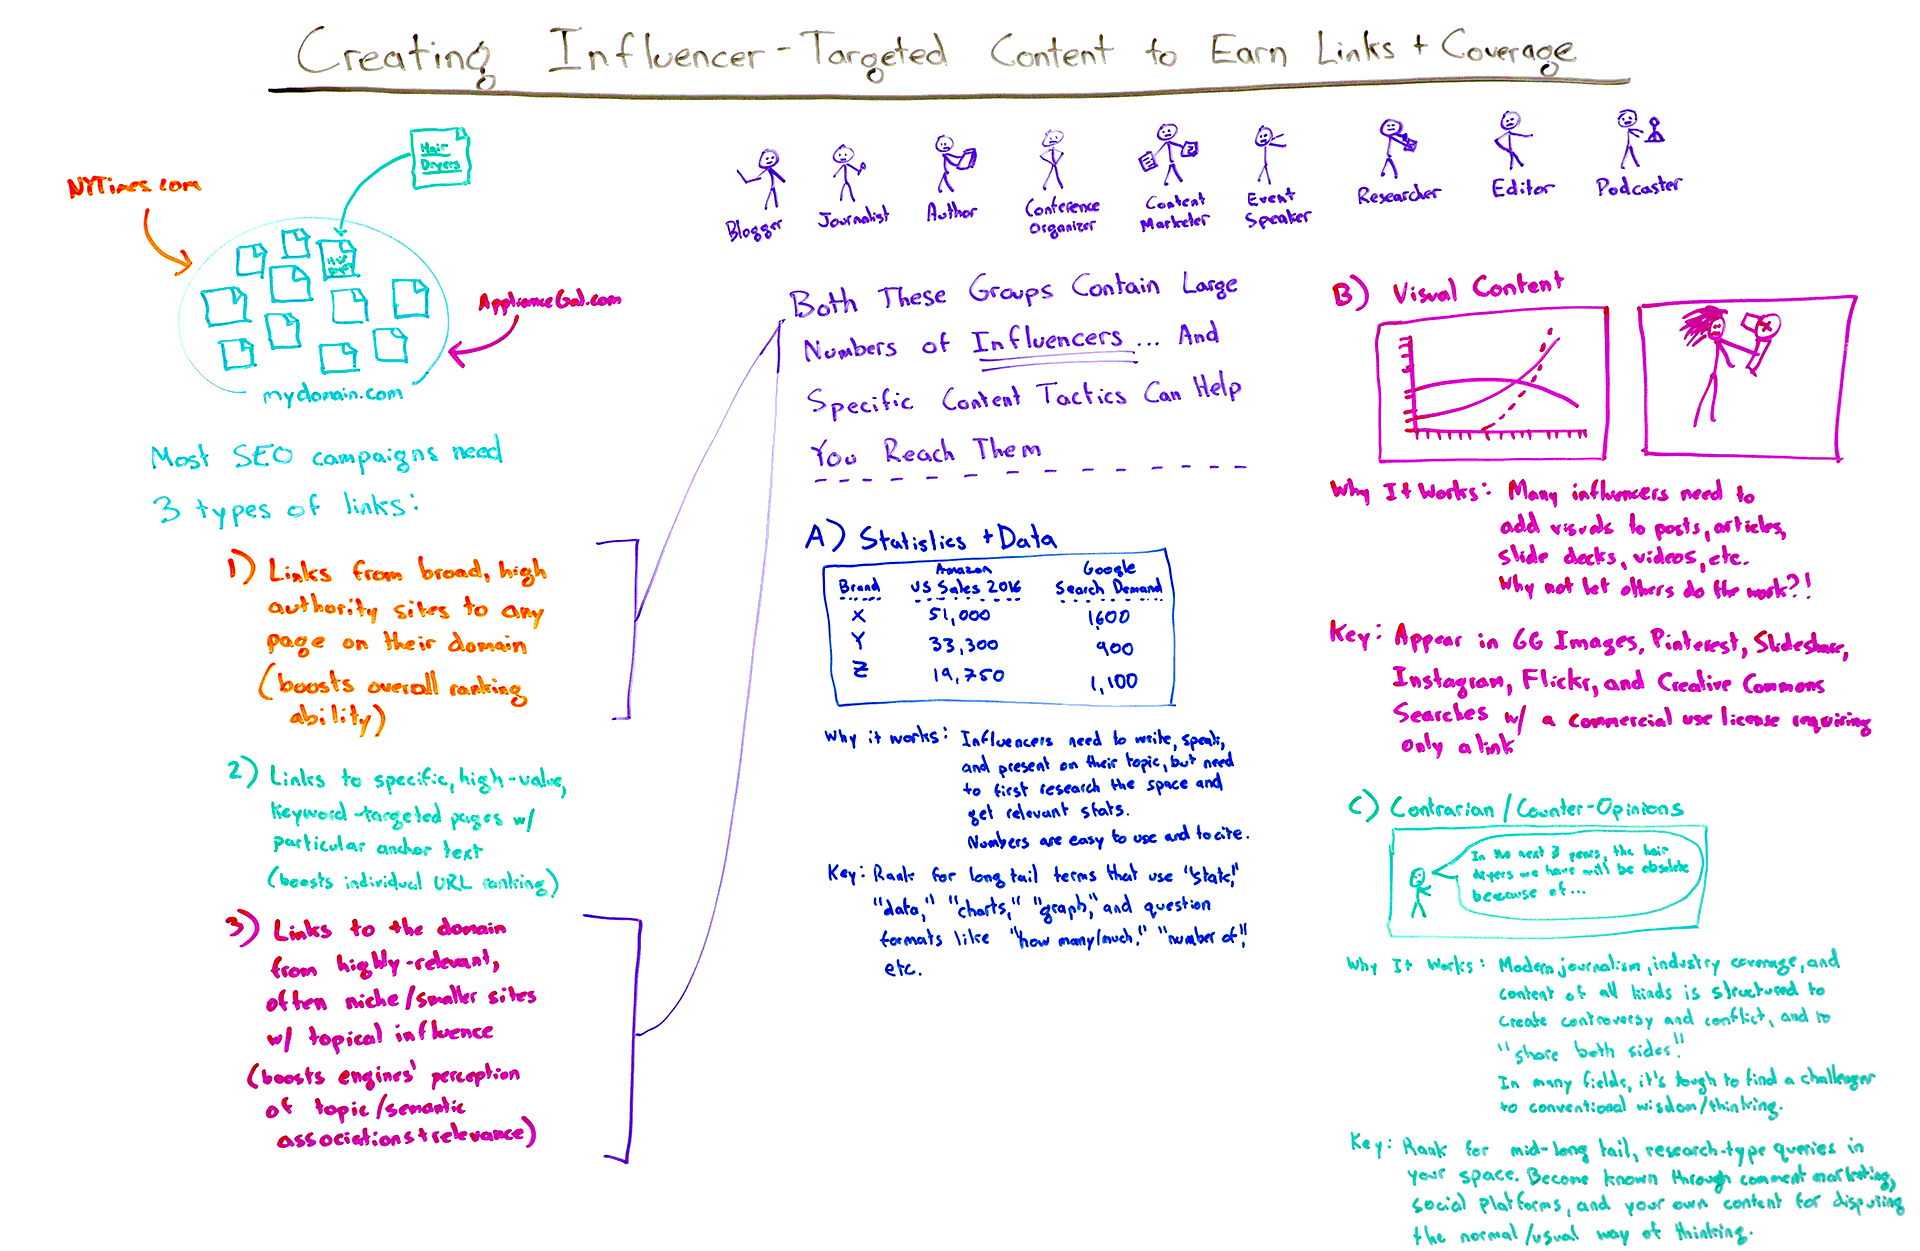 Creating Influencer-Targeted Content to Earn Links + Coverage
Hair
Dryers
NYTimes.com
ApplianceGal.com
mydomain.com
Most SEO campaigns need
3 types of links:
1) Links from broad, high
authority sites to any
page on their domain
(boosts overall ranking
ability)
2) Links to specific, high-value,
keyword-targeted pages w/
particular anchor text
(boosts individual URL ranking)
3) Links to the domain
from highly-relevant,
often niche/smaller sites
w/ topical influence
(boosts engines' perception
of topic/semantic
associations + relevance)
Blogger
Journalist
Author
Conference
Organizer
Content
Marketer
Event
Speaker
Researcher
Editor
Podcaster
Both These Groups Contain Large
Numbers of Influencers ... And
Specific Content Tactics Can Help
You Reach Them
A) Statistics + Data
Amazon Google
Brand US Sales 2016 Search Demand
X 51,000 1600
Y 33,300 900
Z 19,750 1,100
Why it works: Influencers need to write, speak,
and present on their topic, but need
to first research the space and
get relevant stats.
Numbers are easy to use and to cite.
Key: Rank for long tail terms that use "stats,"
"data," "charts," "graph," and question
formats like "how many/much," "number of,"
etc.
B) Visual Content
Why It Works: Many influencers need to
add visuals to posts, articles,
slide decks, videos, etc.
Why not let others do the work?!
Key: Appear in GG Images, Pinterest, Slideshare,
Instagram, Flickr, and Creative Commons
Searches w/ a commercial use license requiring
only a link
C) Contrarian/Counter-Opinions
In the next 3 years, the hair
dryers we have will be obsolete
because of...
Why It Works: Modern journalism, industry coverage, and
content of all kinds is structured to
create controversy and conflict, and to
"share both sides."
In many fields, it's tough to find a challenger
to conventional wisdom/thinking.
Key: Rank for mid-long tail, research-type queries in
your space. Become known through comment marketing,
social platforms, and your own content for disputing
the normal/usual way of thinking.